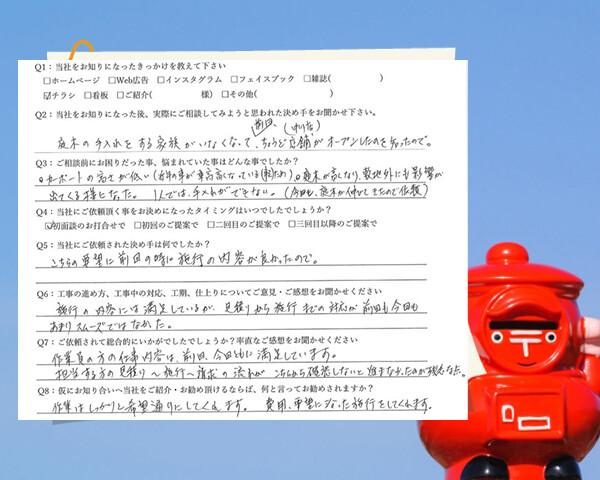 Q1：当社をお知りになったきっかけを教えて下さい
□ホームページ □Web広告 □インスタグラム □フェイスブック □雑誌( )
☑チラシ □看板 □ご紹介( 様) □その他( )
Q2：当社をお知りになった後、実際にご相談してみようと思われた決め手をお聞かせ下さい。
前回、
庭木の手入れをする家族がいなくなって、ちょうど店舗がオープンしたのを知ったので。
Q3：ご相談前にお困りだった事、悩まれていた事はどんな事でしたか？
カーポートの高さが低い 車高が高くなっている ため）。庭木が高くなり、敷地外にも影響が
出てくる様になった。1人では、手入れができない。（今回も、庭木が伸びてきたので依頼）
Q4：当社にご依頼頂く事をお決めになったタイミングはいつでしたでしょうか？
☑初面談のお打合せで □初回のご提案で □二回目のご提案で □三回目以降のご提案で
Q5：当社にご依頼された決め手は何でしたか？
こちらの要望に前回の時に施行の内容が良かったので。
Q6：工事の進め方、工事中の対応、工期、仕上りについてご意見・ご感想をお聞かせください
施行の内容には満足しているが、見積りから施行までの対応が前回も今回も
あまりスムーズではなかた。
Q7：ご依頼されて総合的にいかがでしたでしょうか？率直なご感想をお聞かせください
作業員の方の仕事内容は、前回、今回共に満足しています。
担当する方の見積り→施行→請求の流れがこちらから確認しないと進まなかったのが残念な点。
Q8：仮にお知り合いへ当社をご紹介・お勧め頂けるならば、何と言ってお勧めされますか？
作業はしっかりと希望通りにしてくれます。 費用、要望に沿った施行をしてくれます。